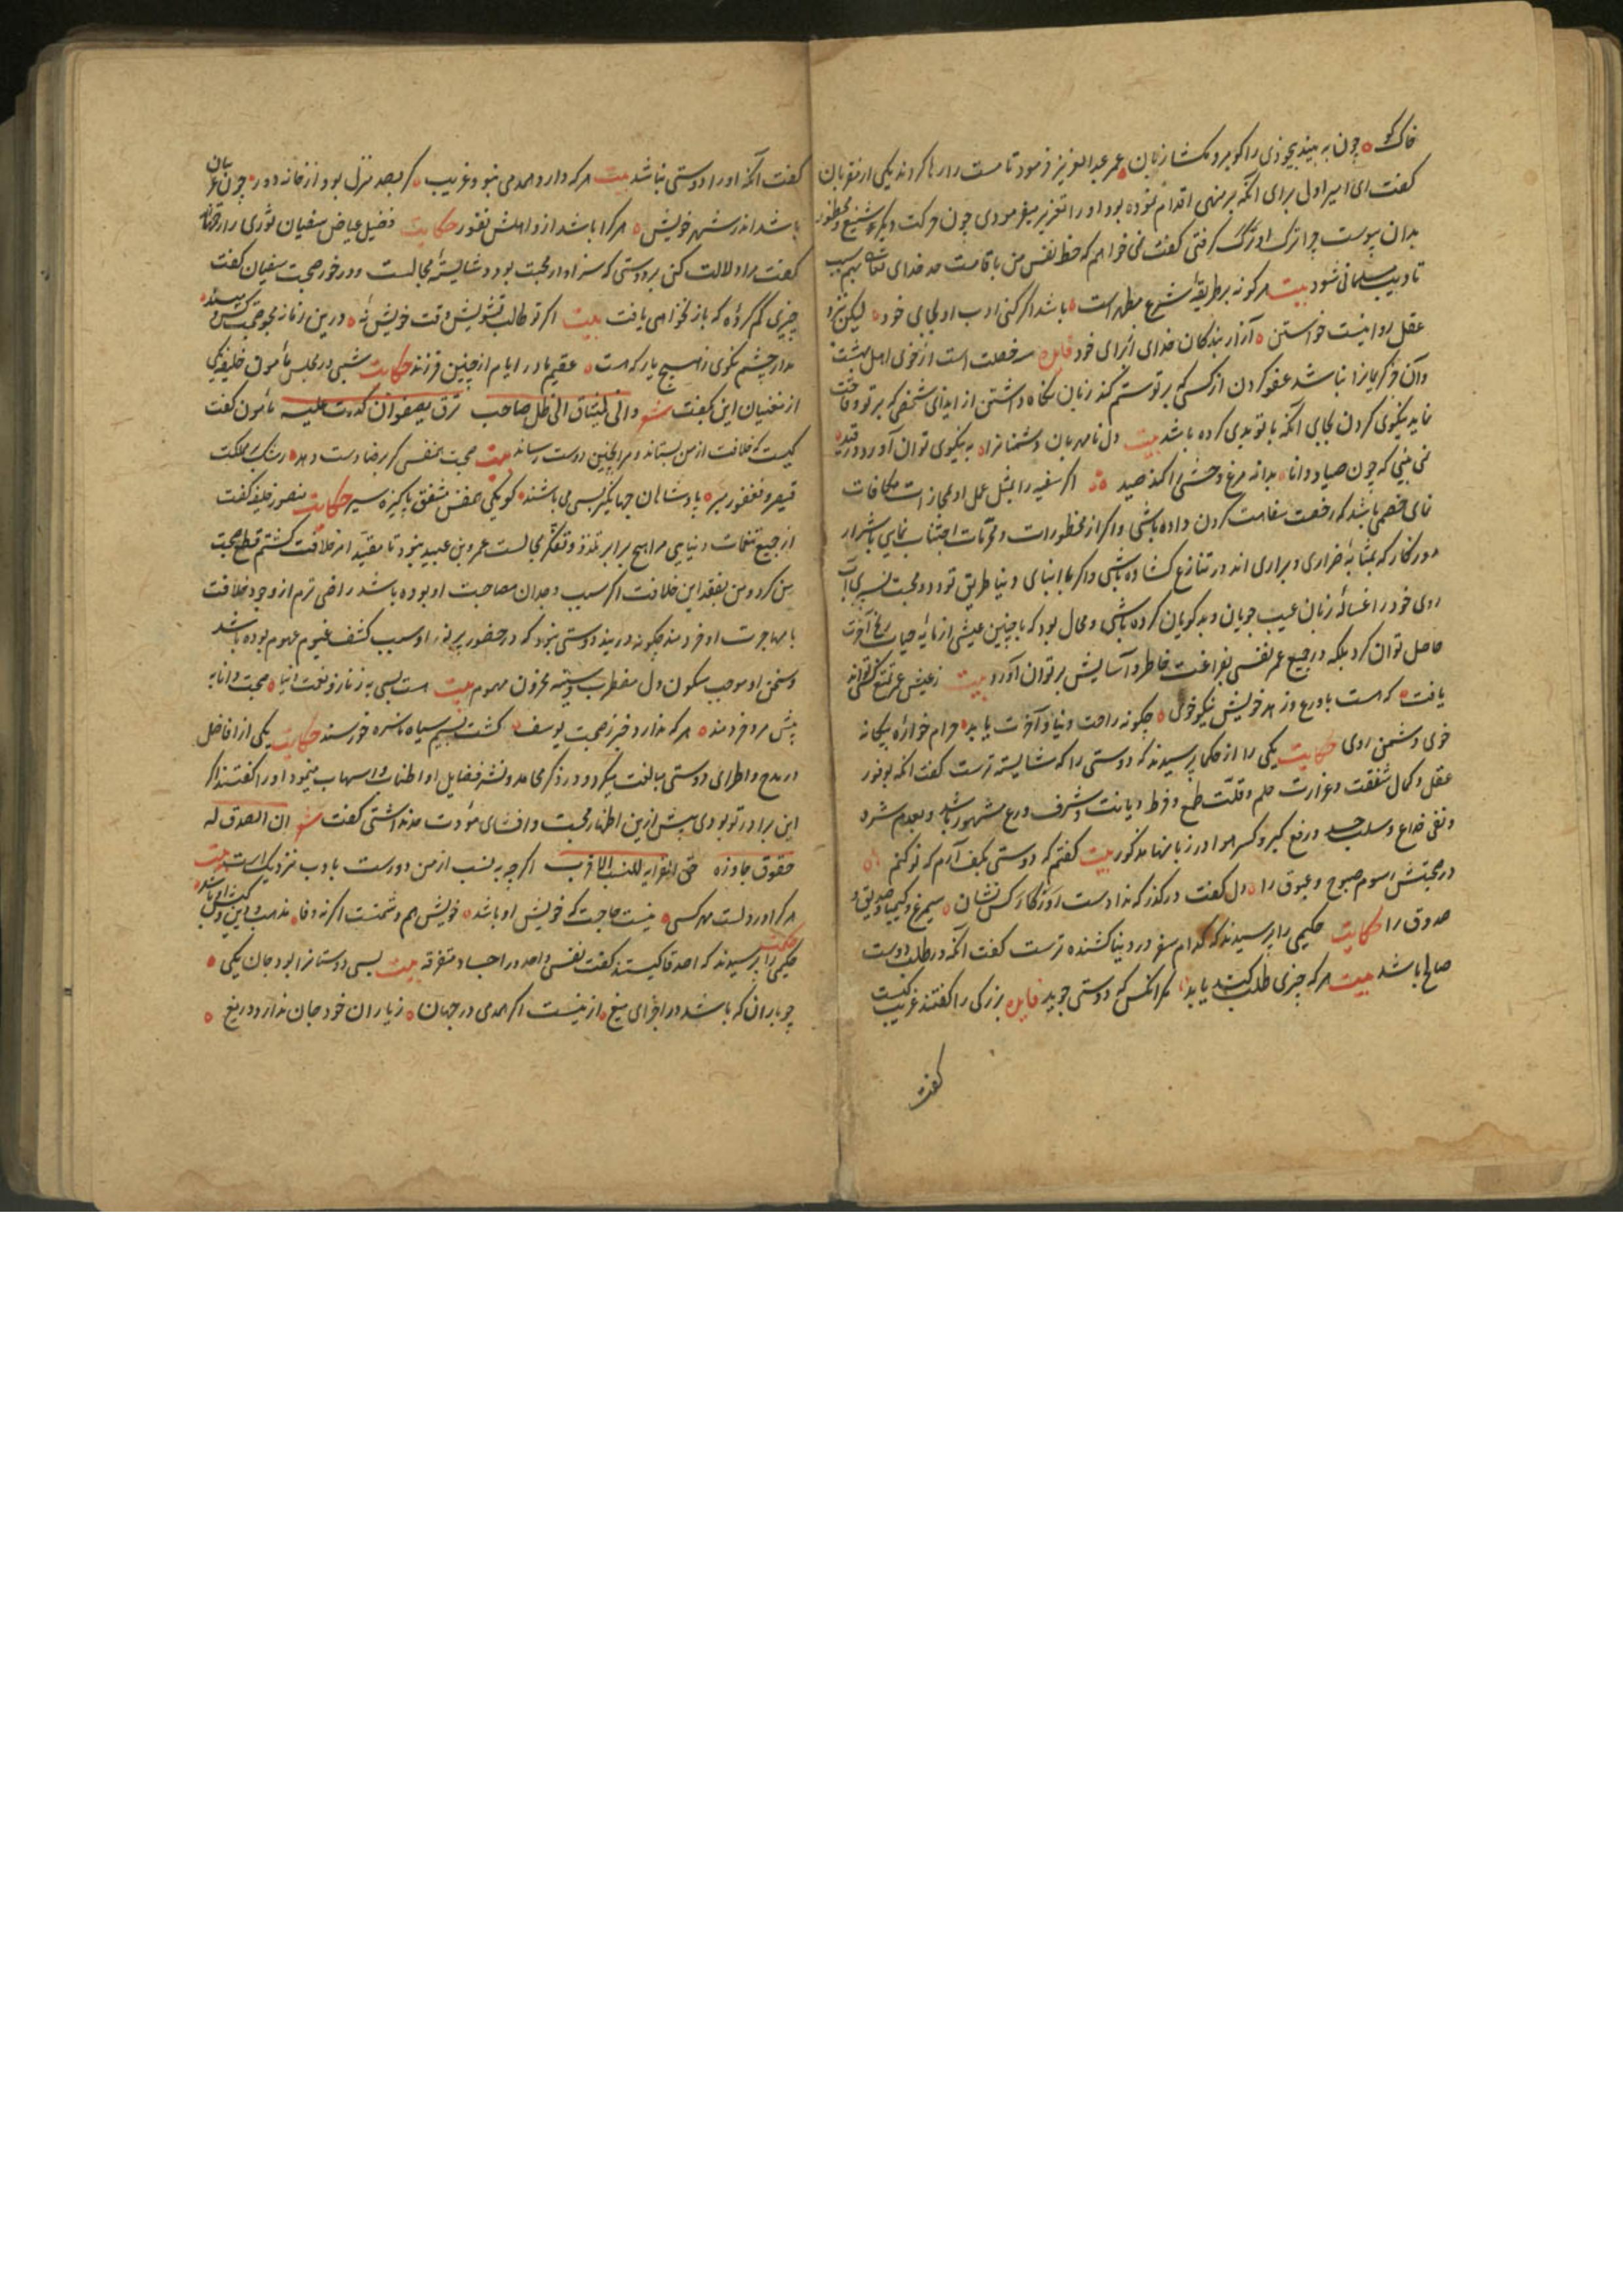 خاک کو ه چون به بیند بیخودی را کو برو مکشا زبان ه عمر عبدالعزیز فرمود تا مست را رها کردند یکی از مقربان
کفت ای امیر اول برای آنکه بر منهی اقدام نموده بود او را تعزیر میفرمودی چون حرکت دیکر شنیع و محظور
بدان پیوست چرا ترک او ترک کرفتی کفت نمی خواهم که حظ نفس من با قامت حد خدای تعالی بهم
تادیب مسلمانی شود بیت هر کو نه بر طریقه شرع مطهر است ه باشد اگر کنی ادب او بجای خود ه لیکن نزد
عقل روا نیست خواستن ه آزار بندکان خدای از برای خود سه خصلت است از خوی اهل بهشت
وآن جز کریمان را نباشد عفو کردن از کسی که بر تو ستم کند زبان نکاه داشتن از ایذای شخصی که بر تو
نماید نیکوی کردن بجای آنکه با تو بدی کرده باشد بیت دل نامهربان دشمنان را ه به نیکوی توان آورد در قید ه
نمی بینی که چون صیاد دانا ه بدانه مرغ وحشی را کند صید ه اگر سفیه را بمثل عمل او مجازات مکافات
نمای خصمی باشد که رخصت سفاهت کردن داده باشی و اکر از محظورات و محرمات اجتناب نمایی با شرار
روزکار که بمثابه ضراری و براری اند در تنازع کشاده باشی و اکر با ابنای دنیا طریق تودد و محبت
روی خود را غسانه زبان عیب جویان و بد کویان کرده باشی و محال بود که با چنین عیشی از مایه حیات آخرت
حاصل توان کرد بلکه در جمیع عمر نفسی بفراغت خاطر و آسایش بر توان آورد بیت ز عیش عمر تمتع کسی تواند
یافت ه که هست با ورع و زهد خویش نیکو خوی ه چکونه راحت دنیا و آخرت یابد ه حرام خواره بیکانه
خوی دشمن روی حکایت یکی را از حکما پرسیدند که دوستی را که شایسته ترست کفت آنکه بوفور
عقل و کمال شفقت و غزارت حلم و قلت طمع و فرط دیانت و شرف ورع مشهور باشد و بعدم شره
و نفی خداع و سلب حسد و رفع کبر و کسر هوا در زبانها مذکور بیت کفتم که دوستی بکف آرم که نو کنم ه
در صحبتش رسوم صبوح و غبوق را ه دل کفت در کذر که نداد ست روزکار کس نشان ه سیمرغ و کیمیا و صدیق و
صدوق را حکایت حکیمی را پرسیدند که کدام سفر در دنیا کشنده ترست کفت آنکه در طلب دوست
صالح باشد بیت هر که چیزی طلب کند یابد ه مکر آنکس که دوستی جوید بزرکی را کفتند غریب کیست
کفت
کفت آنکه او را دوستی نباشد بیت هر که دارد همدمی نبود غریب ه کر بصد منزل بود از خانه دور ه چون غریبان
باشد اندر شهر خویش ه هر کرا باشد از و اهلش نفور حکایت فضیل عیاض سفیان ثوری را
کفت مرا دلالت کن بر دوستی که سزاوار محبت بود و شایسته مجالست و در خور صحبت سفیان کفت
چیزی کم کرده که باز نخواهی یافت بیت اکر تو طالب تشویش وقت خویش نه ه درین زمانه مجو صحبت کس و میسند ه
مدار چشم نکوی ز هیچ یار که هست ه عقیم مادر ایام از چنین فرزند حکایت شبی در مجلس مامون خلیفه یکی
از مغنیان این بکفت شعر وانی لمشتاق الی ظل صاحب یرق یصفو ان کدرت علیه مامون کفت
کیست که خلافت از من بستاند و مرا بچنین دوست رساند بیت صحبت همنفسی کر برضا دست دهد ه رشک مملکت
قیصر و فغفور ببر ه پادشاهان جهانکیر بسی می باشند ه کو یکی همنفس مشفق پاکیزه سیر حکایت منصور خلیفه کفت
از جمیع تنعمات دنیایی مرا هیچ برابر تلذذ و تفکر مجالست عمرو بن عبید نبود تا مقید امر خلافت کشتم قطع صحبت
من کرد و من بفقد این خلافت اکر سبب وجدان مصاحبت او بوده باشد راضی ترم از وجود خلافت
با مهاجرت او خردمند چکونه در بند دوستی نبود که در حضور پر نور او سبب کشف غیوم هموم بوده باشد
و سخن او موجب سکون دل مضطرب و سینه محزون مهموم بیت هست بسی به ز نثار و نعمت دنیا ه صحبت دانا به
پیش مرد خردمند ه هر که ندارد خبر ز صحبت یوسف ه کشت بسیم سیاه ناسره خورسند حکایت یکی از افاضل
در مدح و اطرای دوستی مبالغت میکرد و در ذکر محامد و نشر فضایل او اطناب و اسهاب مینمود او را کفتند اکر
این برادر تو بودی بیش ازین اظهار محبت و افشای مودت حد نداشتی کفت شعر ان الصدق له
حقوق جاوزه حق القرابه للنسب الاقرب اکر چه به نسب از من دورست بادب نزدیک است بیت
هر کرا دوست مهر کسی ه نیست حاجت که خویش او باشد ه خویش هم دشمنست اکر نه وفا ه مذهب و دین و کیش او باشد
حکیمی را پرسیدند که اصدقا کیستند کفت نفسی واحد در اجساد متفرقه بیت بس دوستان را بود جان یکی ه
چو باران که باشد در اجزای میغ ه ازینست اکر همدمی در جهان ه ز یاران خود جان ندارد دریغ ه